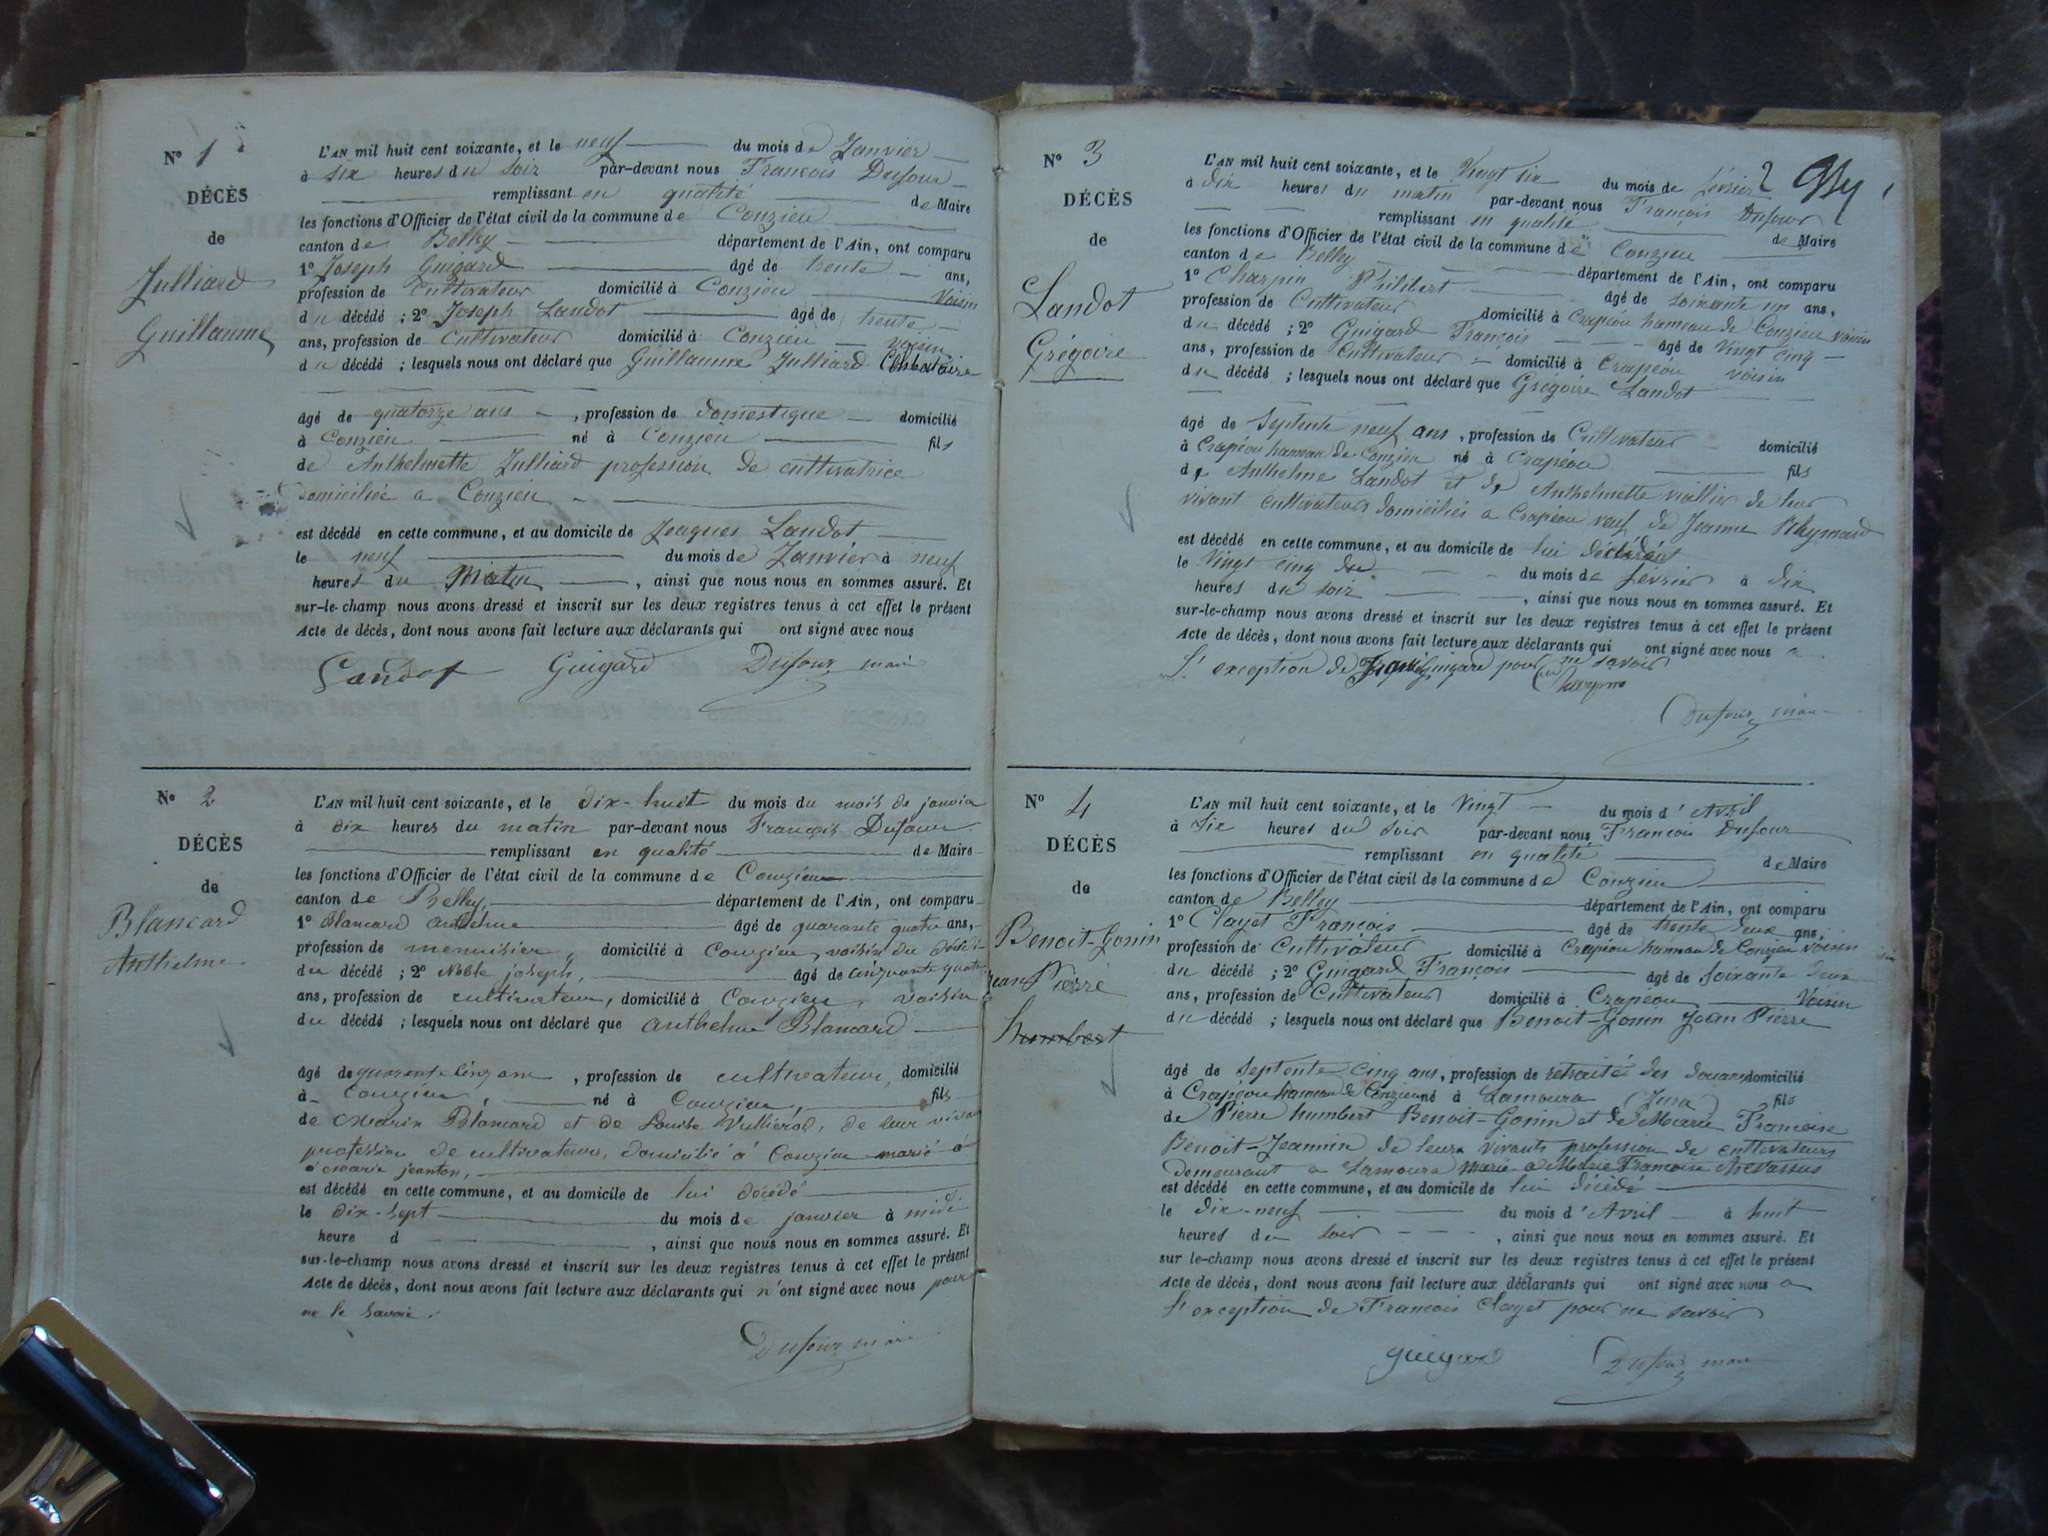 N° 1
DÉCÈS
de
Julliard
Guillaume
L'AN mil huit cent soixante, et le neuf du mois de Janvier
à six heures du soir par-devant nous François Dufour
remplissant en qualité de Maire
les fonctions d'Officier de l'état civil de la commune de Conzieu
canton de Belley département de l'Ain, ont comparu
1° Joseph Guigard âgé de trente ans,
profession de cultivateur domicilié à Conzieu voisin
du décédé ; 2° Joseph Landot âgé de trente
ans, profession de cultivateur domicilié à Conzieu voisin
du décédé ; lesquels nous ont déclaré que Guillaume Julliard Célibataire
âgé de quatorze ans, profession de domestique domicilié
à Conzieu né à Conzieu fils
de Anthelmette Julliard profession de cultivatrice
domiciliée a Conzieu
est décédé en cette commune, et au domicile de Jacques Landot
le neuf du mois de Janvier à neuf
heures du Matin, ainsi que nous nous en sommes assuré. Et
sur-le-champ nous avons dressé et inscrit sur les deux registres tenus à cet effet le présent
Acte de décès, dont nous avons fait lecture aux déclarants qui ont signé avec nous
Landot Guigard Dufour maire
N° 2
DÉCÈS
de
Blancard
Anthelme
L'AN mil huit cent soixante, et le dix-huit du mois du mois de janvier
à dix heures du matin par-devant nous François Dufour
remplissant en qualité de Maire
les fonctions d'Officier de l'état civil de la commune de Conzieu
canton de Belley, département de l'Ain, ont comparu
1° Blancard anthelme âgé de quarante quatre ans,
profession de menuisier, domicilié à Conzieu, voisin du
du décédé ; 2° Noble joseph, âgé de cinquante quatre
ans, profession de cultivateur, domicilié à Conzieu, voisin
du décédé ; lesquels nous ont déclaré que anthelme Blancard
âgé de quarante cinq ans, profession de cultivateur, domicilié
à Conzieu, né à Conzieu, fils
de Marin Blancard et de Louise Vullierod, de leur vivant
profession de cultivateurs, domicilié à Conzieu marié à
à marie jeanton,
est décédé en cette commune, et au domicile de lui décédé
le dix-sept du mois de janvier à midi
heure d , ainsi que nous nous en sommes assuré. Et
sur-le-champ nous avons dressé et inscrit sur les deux registres tenus à cet effet le présent
Acte de décès, dont nous avons fait lecture aux déclarants qui n'ont signé avec nous pour
ne le savoir.
Dufour maire
2
N° 3
DÉCÈS
de
Landot
Grégoire
L'AN mil huit cent soixante, et le Vingt six du mois de février
à dix heures du matin par-devant nous François Dufour
remplissant en qualité de Maire
les fonctions d'Officier de l'état civil de la commune de Conzieu
canton de Belley département de l'Ain, ont comparu
1° Charpin Philibert âgé de soixante un ans,
profession de Cultivateur domicilié à Crapéou hameau de Conzieu voisin
du décédé ; 2° Guigard François âgé de vingt cinq
ans, profession de Cultivateur domicilié à Crapéou voisin
du décédé ; lesquels nous ont déclaré que Grégoire Landot
âgé de Septente neuf ans, profession de Cultivateur domicilié
à Crapéou hameau de Conzieu né à Crapéou fils
d, Anthelme Landot et d, Anthelmette viallier de leur
vivant cultivateurs domiciliés a Crapéou veuf de Jeanne
est décédé en cette commune, et au domicile de lui
le Vingt cinq du mois de fevrier à dix
heures du soir, ainsi que nous nous en sommes assuré. Et
sur-le-champ nous avons dressé et inscrit sur les deux registres tenus à cet effet le présent
Acte de décès, dont nous avons fait lecture aux déclarants qui ont signé avec nous a
l'exception de Guigard pour ne savoir
Dufour maire
N° 4
DÉCÈS
de
Benoit-Gonin
jean Pierre
humbert
L'AN mil huit cent soixante, et le Vingt du mois d'Avril
à Six heures du soir par-devant nous François Dufour
remplissant en qualité de Maire
les fonctions d'Officier de l'état civil de la commune de Conzieu
canton de Belley département de l'Ain, ont comparu
1° Clayet François âgé de trente deux ans,
profession de Cultivateur domicilié à Crapéou hameau de Conzieu voisin
du décédé ; 2° Guigard François âgé de soixante deux
ans, profession de Cultivateur domicilié à Crapeou Voisin
du décédé ; lesquels nous ont déclaré que Benoit-Gonin Jean Pierre
âgé de Septente cinq ans, profession de retraité des douanes domicilié
à Crapéou hameau de Conzieu né à Lamoura (Jura) fils
de Pierre humbert Benoit-Gonin et de Marie Françoise
Benoit-Jeannin de leurs vivants profession de cultivateurs
demeurant a Lamoura marié a Marie Françoise
est décédé en cette commune, et au domicile de lui décédé
le dix-neuf du mois d'Avril à huit
heures du soir, ainsi que nous nous en sommes assuré. Et
sur le-champ nous avons dressé et inscrit sur les deux registres tenus à cet effet le présent
Acte de décès, dont nous avons fait lecture aux déclarants qui ont signé avec nous a
l'exception de François Clayet pour ne savoir
guigard Dufour maire